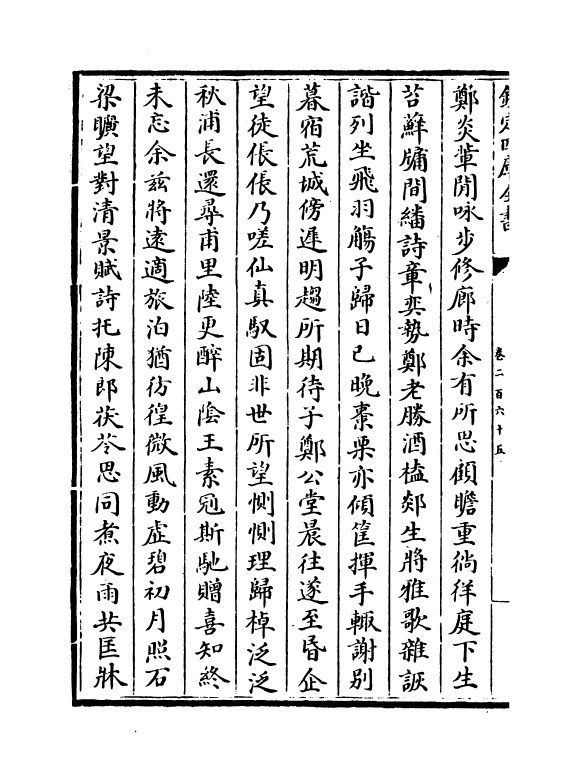 欽定四庫全書
卷二百六十五
鄭炎葦閒咏步修廊時余有所思顧瞻重徜徉庭下生
苔蘚牖間繙詩章奕勢鄭老勝酒榼郯生將雅歌雜詼
諧列坐飛羽觴子歸日已晚棗栗亦傾筐揮手輒謝别
暮宿荒城傍遲明趨所期待子鄭公堂晨往遂至昏企
望徒倀倀乃嗟仙真馭固非世所望惻惻理歸棹泛泛
秋浦長還尋甫里陸更醉山陰王素冠斯馳贈喜知終
未忘余兹將遠適旅泊猶彷徨微風動虚碧初月照石
梁曠望對清景賦詩托陳郎茯苓思同煮夜雨共匡牀